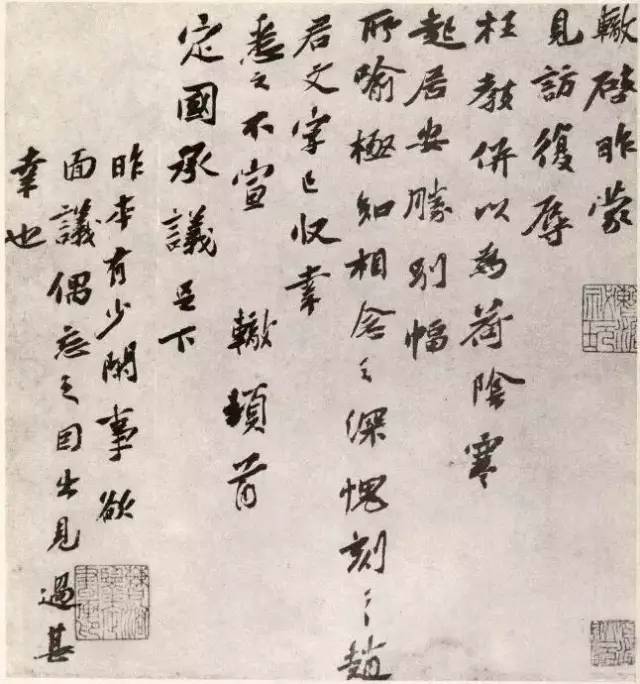 轍啓昨蒙
見訪復辱
枉教併以為荷陰寒
起居安勝別幅
所喻極知相念之深愧刻之趙
君文字已収幸
悉之不宣 轍頓首
定國承議足下
昨本有少閑事欲
面議偶忘之因出見過甚
幸也